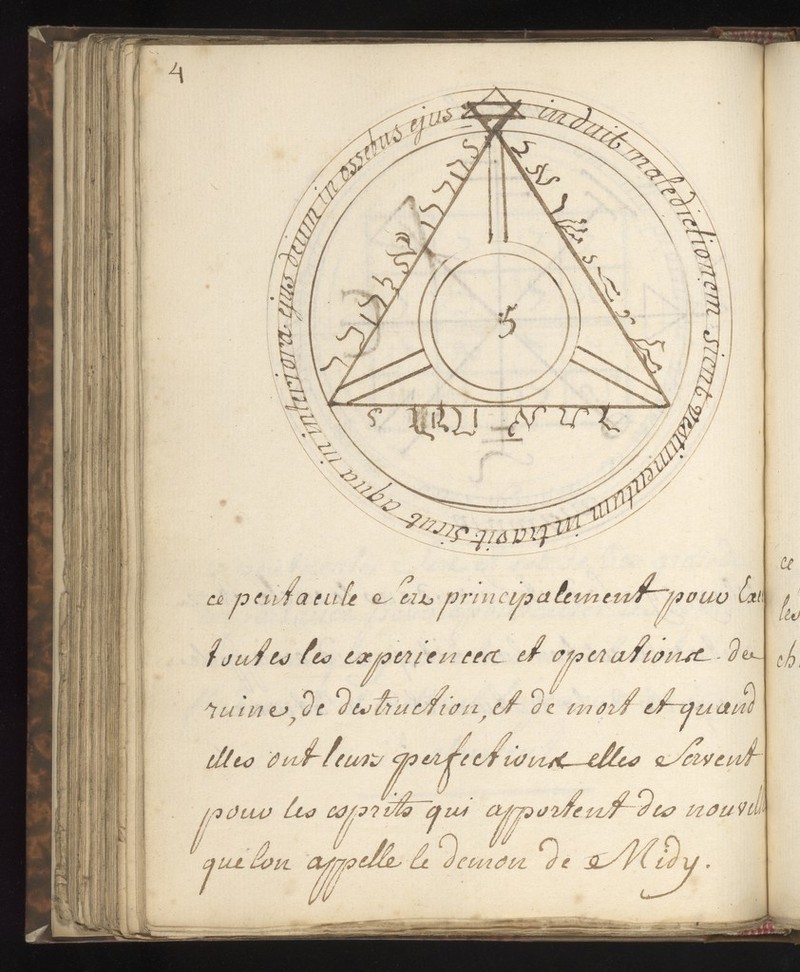 4
induit maledictionem sicut vestimentum intravit sicut aqua in interiora ejus oleum in ossebus ejus
5
ce pentacule Sert principalement pour
toutes les experiences et operations de
ruine, de destruction, et de mort et quand
elles ont leurs perfections elles Servent
pour les esprits qui apportent des nouvell
que lon appelle le demon de Midy.
ce
les
ch